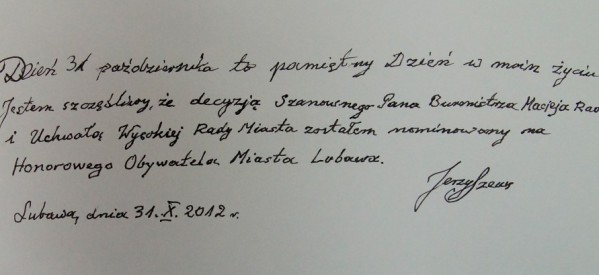 Dzień 31 października to pamiętny Dzień w moim życiu
Jestem szczęśliwy, że decyzją Szanownego Pana Burmistrza Macieja Rad
i Uchwałą Wysokiej Rady Miasta zostałem nominowany na
Honorowego Obywatela Miasta Lubawa.
Jerzy
Lubawa, dnia 31.X.2012 r.